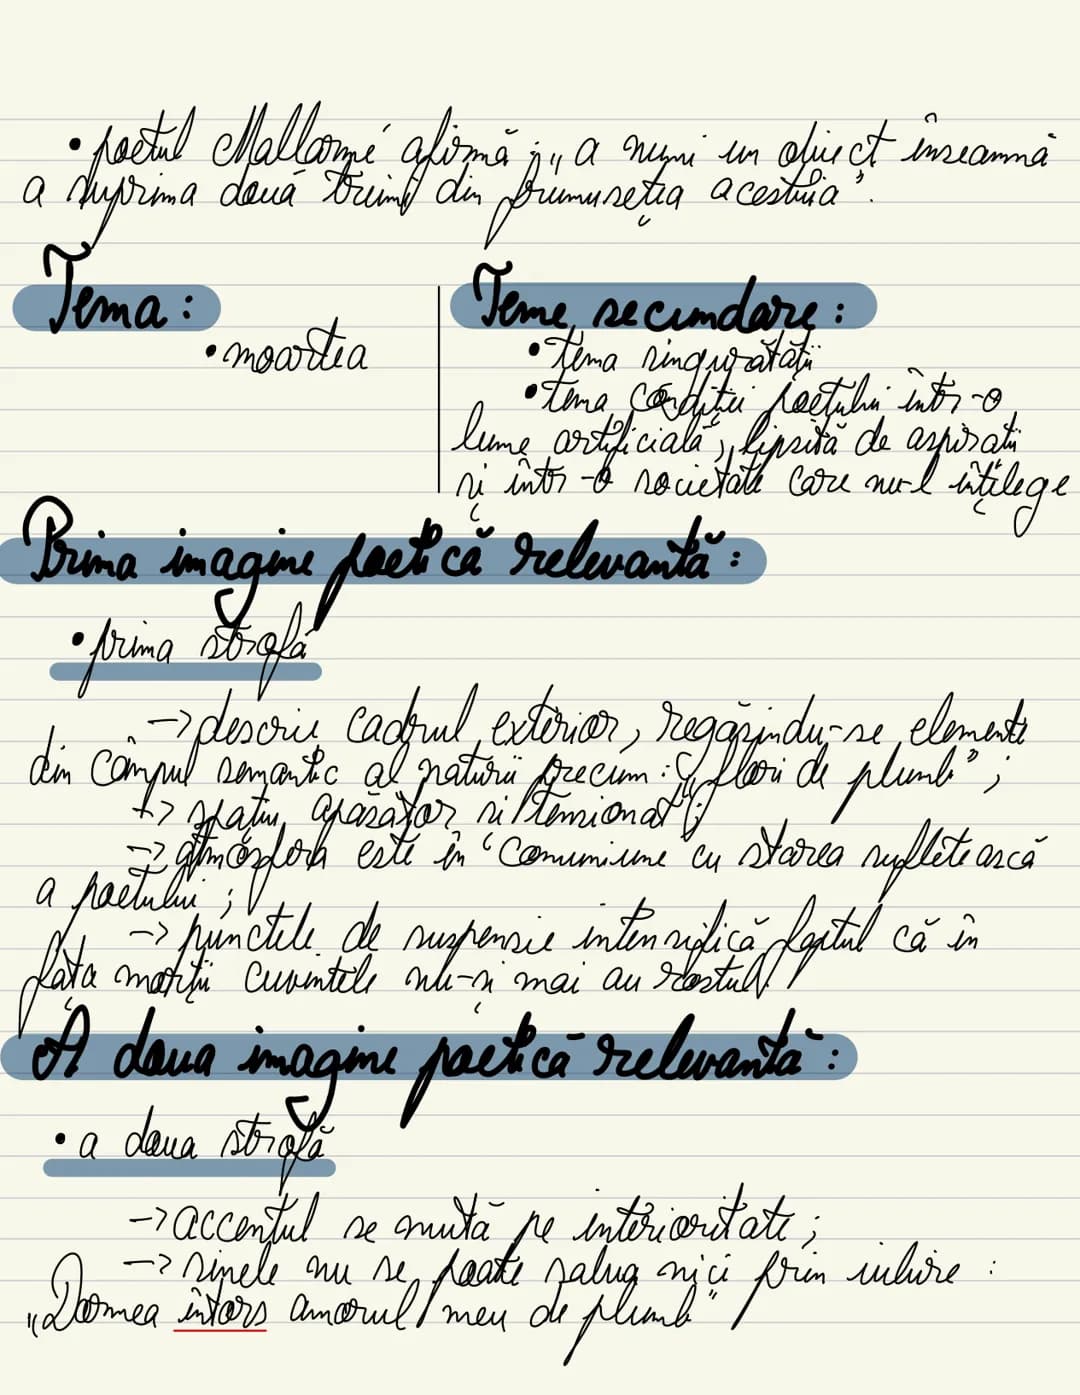 • poetul Mallarmé afirmă : „a numi un obiect înseamnă
a suprima două treimi din frumusețea acestuia".
Tema :
• moartea
Teme secundare :
• tema singurătății
• tema condiției poetului într-o
lume artificială, lipsită de aspirații
și într-o societate care nu-l înțelege
Prima imagine poetică relevantă :
• prima strofă
-> descrie cadrul exterior, regăsindu-se elemente
din câmpul semantic al naturii precum : „flori de plumb" ;
-> spațiu apăsător și tensionat ;
-> atmosfera este în comuniune cu starea sufletească
a poetului ;
-> punctele de suspensie intensifică faptul că în
fața morții cuvintele nu-și mai au rostul.
A doua imagine poetică relevantă :
• a doua strofă
-> accentul se mută pe interioritate ;
-> sinele nu se poate salva nici prin iubire :
„Dormea întors amorul meu de plumb"